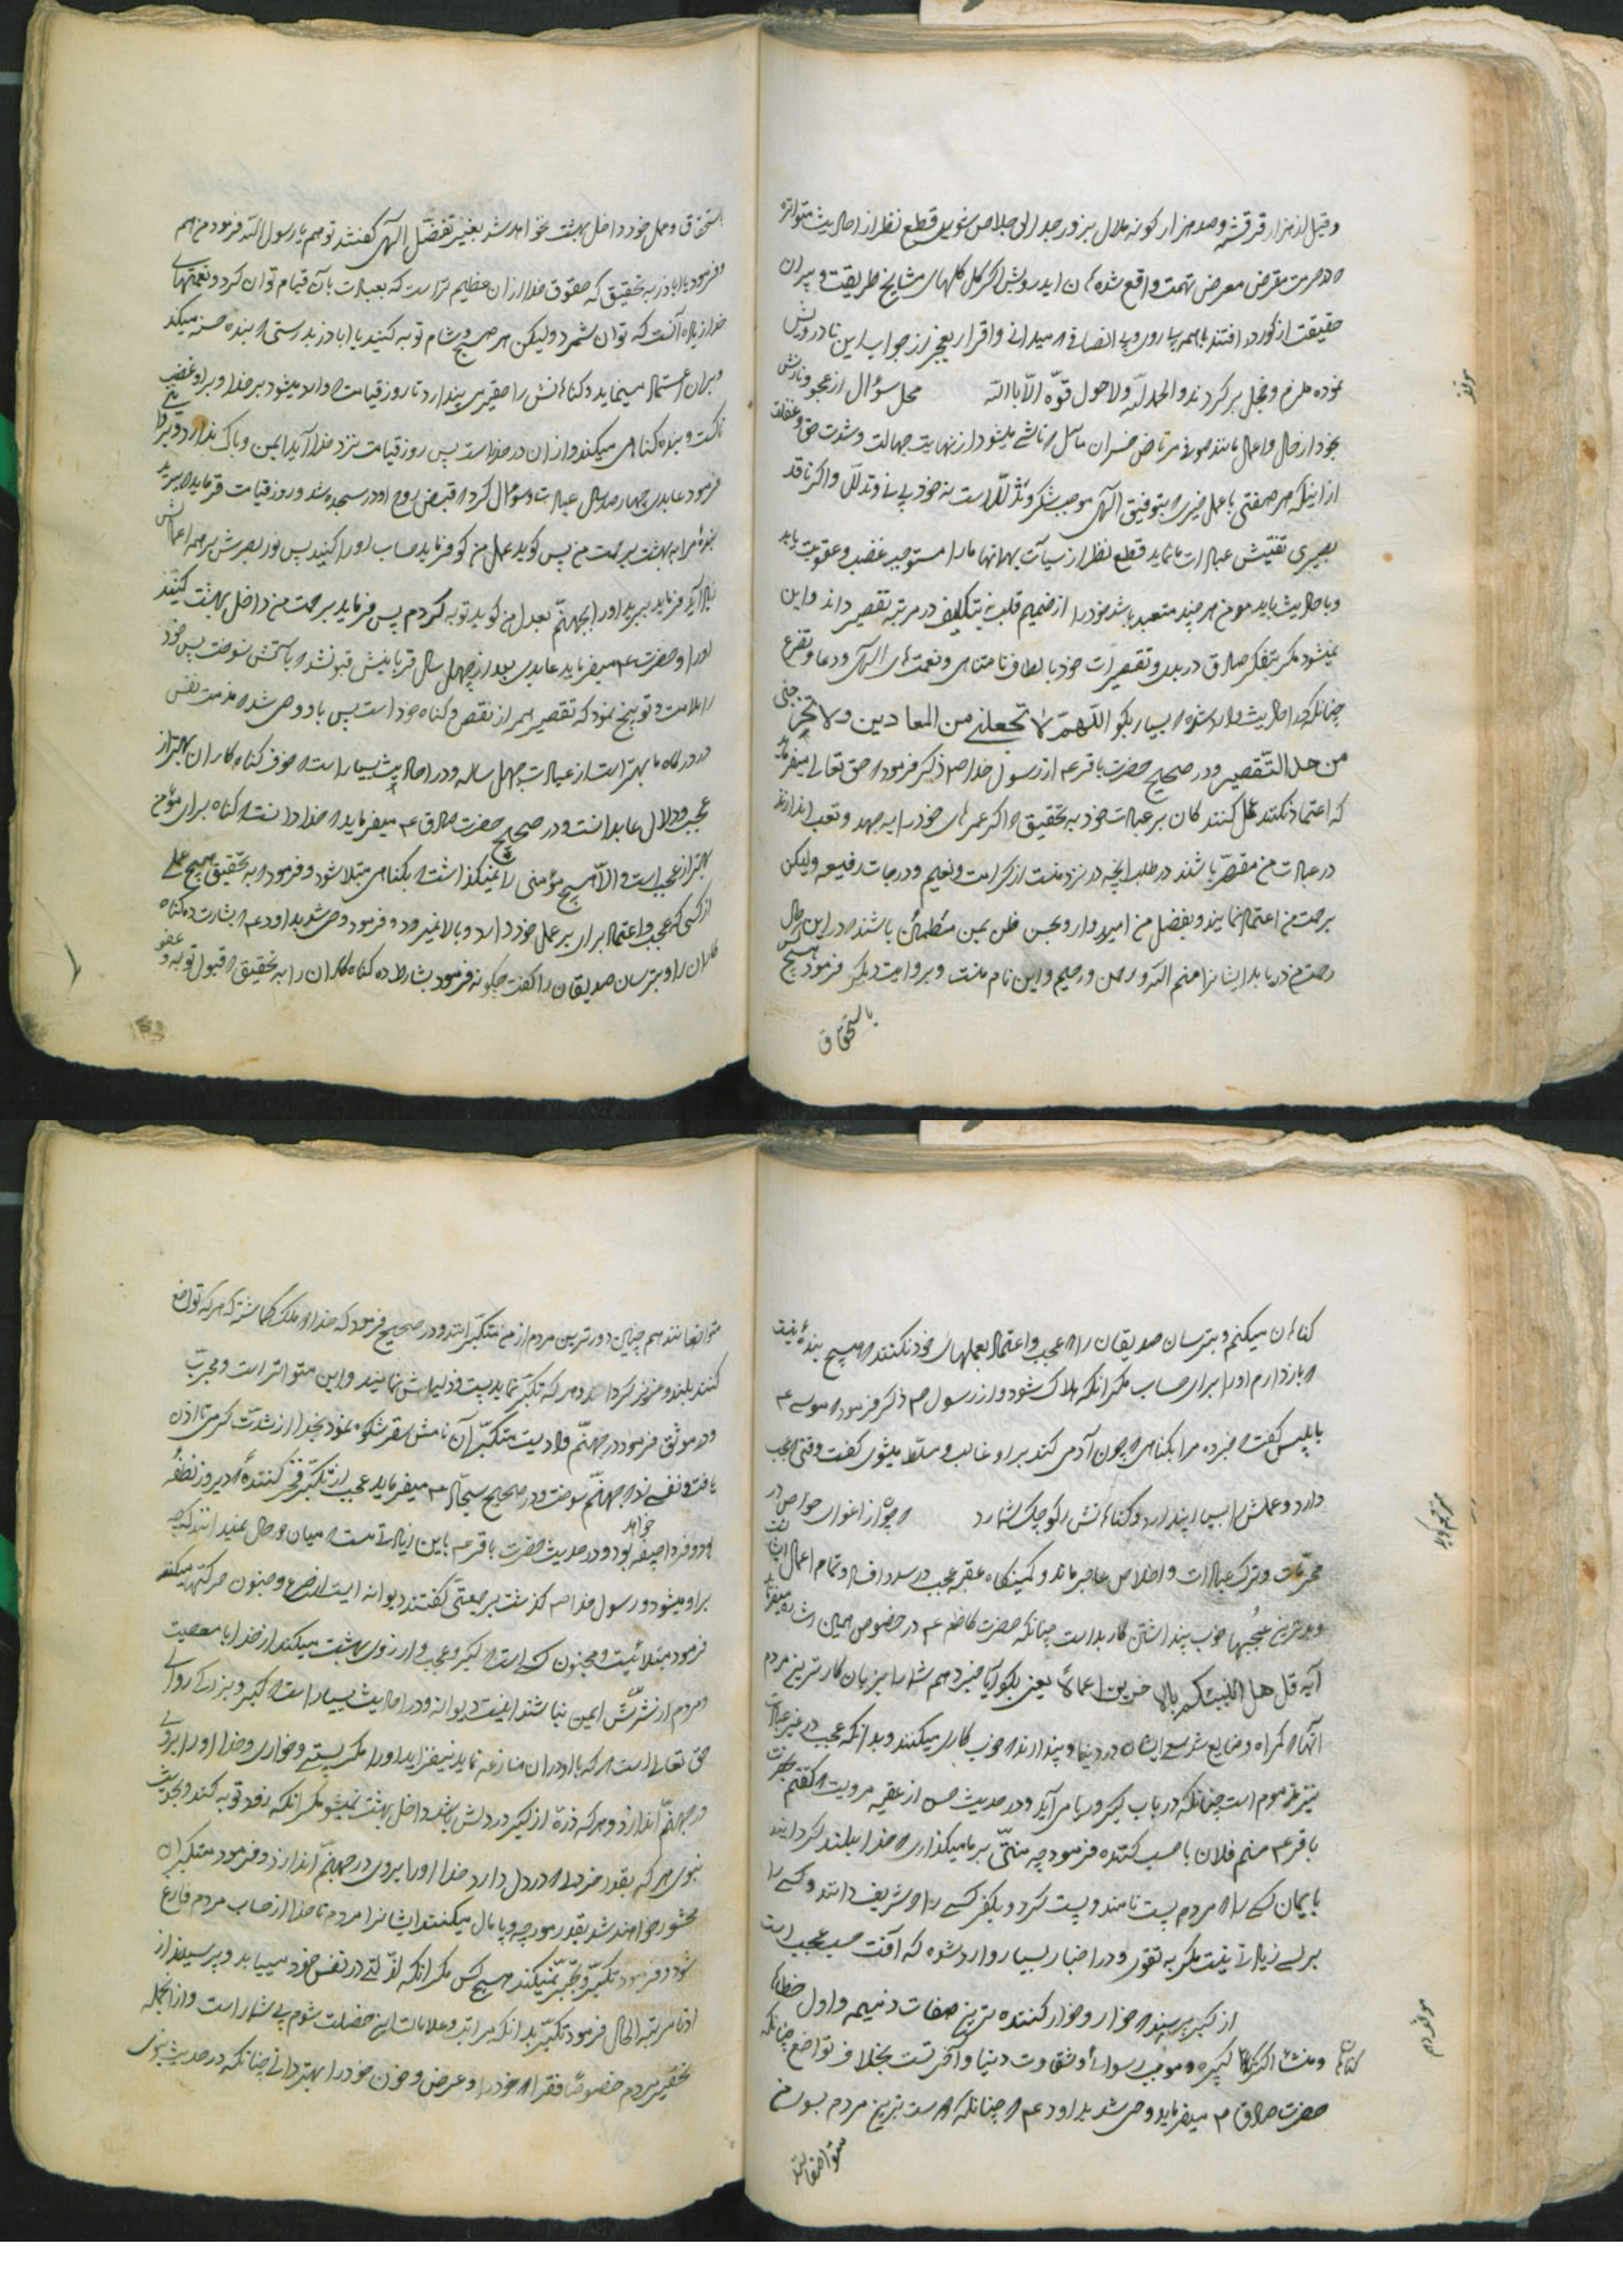 وقیل لذ هزار قرقشه و صد هزار کونه ملال بزور جدل لی خلاص شوی قطع نظر از احادیث متواتره
که حرمت مقرض معرض تهمت واقع شده ان ایدرویش اکر کل کلهای مشایخ طریقت و پیران
حقیقت از کور در افتند با همه بیاروی و بی انصافی که میدانی و اقرار بعجز از جواب این نادرویش
نموده ملزم و خجل برکردند والحمد لله ولا حول قوّة الاّ بالله محل سؤال از عجب و نازش
بخود از حال و اعمال مانند صوفی مرتاض خسران مآل که ناشی میشود از نهایت جهالت و شدت حمق و غفلت
از اینکه هر صفتی یا عمل خیری که بتوفیق الهی موجب شکر و تذلّل است نه خودبینی و تدلّل واکر ناقد
بصیری تفتیش عبادات ما نماید قطع نظر از سیآت بهمانها ما را مستوجب غضب و عقوبت یابد
و باحادیث باید مومن هر چند متعبد باشد خود را از صمیم قلب نه بتکلیف در مرتبه تقصیر داند و این
نمیشود مکر بتفکر صادق در بدی و تقصیرات خود با لطاف نامتناهی و نعمت های الهی و دعا و تضرع
چنانکه در احادیث وارد شده که بسیار بکو اللّهمّ لا تجعلنی من المعادین ولا تخرجنی
من حد التقصیر ودر صحیح حضرت باقر ع از رسول خدا ص ذکر فرمود که حق تعالی میفرماید
که اعتماد نکنند عمل کنند کان بر عبادت خود به تحقیق که اکر عمر های خود را به جهد و تعب اندازند
در عبادت من مقصّر باشند در طلب آنچه در نزد منست از کرامت و نعیم و درجات رفیعه ولیکن
برحمت من اعتماد نمایند و بفضل من امیدوار و بحسن ظن بمن مطمئن باشند که در این حال
رحمت من دریابد ایشانرا منم الله و رحمن و رحیم و این نام منست و بروایت دیکر فرمود هیچکس
باستحقاق
باستحقاق و عمل خود داخل بهشت نخواهد شد بغیر تفضّل الهی کفتند تو هم یا رسول الله فرمود من هم
و فرمود یا اباذر به تحقیق که حقوق خدا از ان عظیم تر است که بعبادت بآن قیام توان کرد و نعمتهای
خدا زیاده از آنست که توان شمرد ولیکن هر صبح و شام توبه کنید یا اباذر بدرستی که بنده حسنه میکند
و بران اعتماد مینماید و کناهانش را حقیر می پندارد تا روز قیامت که وارد میشود بر خدا و بر او غضب
ناکست و بنده کناهی میکند و از ان در حذر است پس روز قیامت نزد خدا آید ایمن و باک ندارد
فرمود عابدی چهار صد سال عبادت و سؤال کرد که قبض روح او در سجده شد و روز قیامت فرماید که ببرید
بندهٔ مرا به بهشت برحمت من پس کوید بعمل من کو فرماید حساب او را کنید پس نور بصرش بر همه اعمالش
زیاد آید فرماید ببرید او را بجهنّم بعدل من کوید توبه کردم پس فرماید برحمت من داخل بهشت کنید
او را و حضرت ع میفرماید عابدی بعد از چهل سال قربانیش قبول نشد که بآتش نسوخت پس خود
را ملامت و توبیخ نمود که تقصیر همه از نقص و کناه خود است پس باو وحی شد که مذمت نفس
در درکاه ما بهتر است از عبادت چهل ساله و در احادیث بسیار است که خوف کناه کاران بهتر از
عجب و دلال عابدانست و در صحیح حضرت صادق ع میفرماید که خدا دانست که کناه برای مؤمن
بهتر از عجب است و الاّ هیچ مؤمنی را نمیکذاشت که بکناهی مبتلا شود و فرمود که به تحقیق هیچ عملی
از کسی که عجب و اعتماد بران بر عمل خود دارد بالا نمیرود و فرمود وحی شد بداود ع که بشارت ده کناه
کاران را و بترسان صدیقان را کفت چکونه فرمود بشارت ده کناه کاران را به تحقیق که قبول توبه و عفو
کناهان میکنم و بترسان صدیقان را که عجب و اعتماد بعملهای خود نکنند که هیچ بندهٔ نیست
که باز دارم او را برای حساب مکر آنکه هلاک شود و از رسول ص ذکر فرمود که موسی ع
بابلیس کفت که خبر ده مرا بکناهی که چون آدمی کند بر او غالب و مسلّط میشوی کفت وقتی که عجب
دارد و عملش را بسیار پندارد و کناهانش را کوچک شمارد که چو از اغوای خواص در
محرّمات و ترک عبادات و اخلاص عاجز ماند و کمینکاه عقبه عجب در سدد افساد تمام اعمال
و بدترین عجبها خوب پنداشتن کار بد است چنانکه حضرت کاظم ع در خصوص همین است تفسیر میفرماید
آیه قل هل اننبئکم بالاخرین اعمالا یعنی بکو آیا خبر دهم شما را بزیان کارترین مردم
آنها که کمراه و ضایع شد سعی ایشان در دنیا و پندارند که خوب کاری میکنند و بدانکه عجب در غیر عبادت
نیز مذموم است چنانکه در باب کبر و ریا می آید و در حدیث حسن از عقبه مرویست که کفتم بحضرت
باقر ع منم فلان با حسب کنده فرمود چه منّتی بر ما میکذاری که خدا بلند کردانید
بایمان کسی را که مردم پست نامند و پست کرد بکفر کسی را که شریف دانند و کسی را
بر کسی زیادتی نیست مکر به تقوی و در اخبار بسیار وارد شده که آفت حسب عجب است
از کبر بپرسید که خوار و خوار کننده ترین صفات ذمیمه و اول خطاها
و منشاء اکثر کناهان کبیره و موجب رسوائی و شقاوت دنیا و آخرتست بخلاف تواضع چنانکه
حضرت صادق ع میفرماید وحی شد بداود ع که چنانکه دوست ترین مردم بسوی من
متواضعانند
متواضعانند هم چنین دورترین مردم از من متکبّرانند و در صحیح فرمود که خدا دو ملک کماشته که هر که تواضع
کنند بلند و عزیز کردانند و هر که تکبّر نماید پست و ذلیلش نمایند و این متواتر است و مجرّب
و در موثق فرمود در جهنّم وادیست متکبّران را نامش سقر شکوه نمود بخدا از شدّت کرمی تا اذن
یافت و نفسی زد که جهنّم سوخت و در صحیح سجّاد ع میفرماید عجب از تکبّر فخر کنندهٔ که دیروز نطفه
بود و فردا جیفه خواهد بود و در حدیث حضرت باقر ع باین زیادتست که میان دو حال نمیداند که چه
بر او میشود و رسول خدا ص کذشت بر جمعیّتی کفتند دیوانه ایست از صرع و جنون حرکتها میکند
فرمود مبتلائیست و مجنون کسی است که کبر و عجب و آرزوی بهشت میکند از خدا با معصیت
و مردم از شرّش ایمن نباشند اینست دیوانه و در احادیث بسیار است که کبر و بزرکی ردای
حق تعالی است هر که با او در ان منازعه نماید نیفزاید او را مکر پستی و خواری و خدا او را بروی
در جهنّم اندازد و هر که ذرّهٔ از کبر در دلش باشد داخل بهشت نمیشود مکر آنکه زود توبه کند و بحدیث
نبوی هر که بقدر خردلی در دل دارد خدا او را بروی در جهنّم اندازد و فرمود متکبّران
محشور خواهند شد بقدر مورچه و پامال میکنند ایشانرا مردم تا خدا از حساب مردم فارغ
شود و فرمود تکبّر و تجبّر نمیکند هیچ کس مکر آنکه ذلّتی در نفس خود مییابد و پرسیدند از
ادنا مرتبه الحاد فرمود تکبّر بدانکه مراتب و علامات این خصلت شوم بی شمار است و از انجمله
تحقیر مردم خصوصا فقرا که خود را و عرض و خون خود را بهتر دانی چنانکه در حدیث نبوی